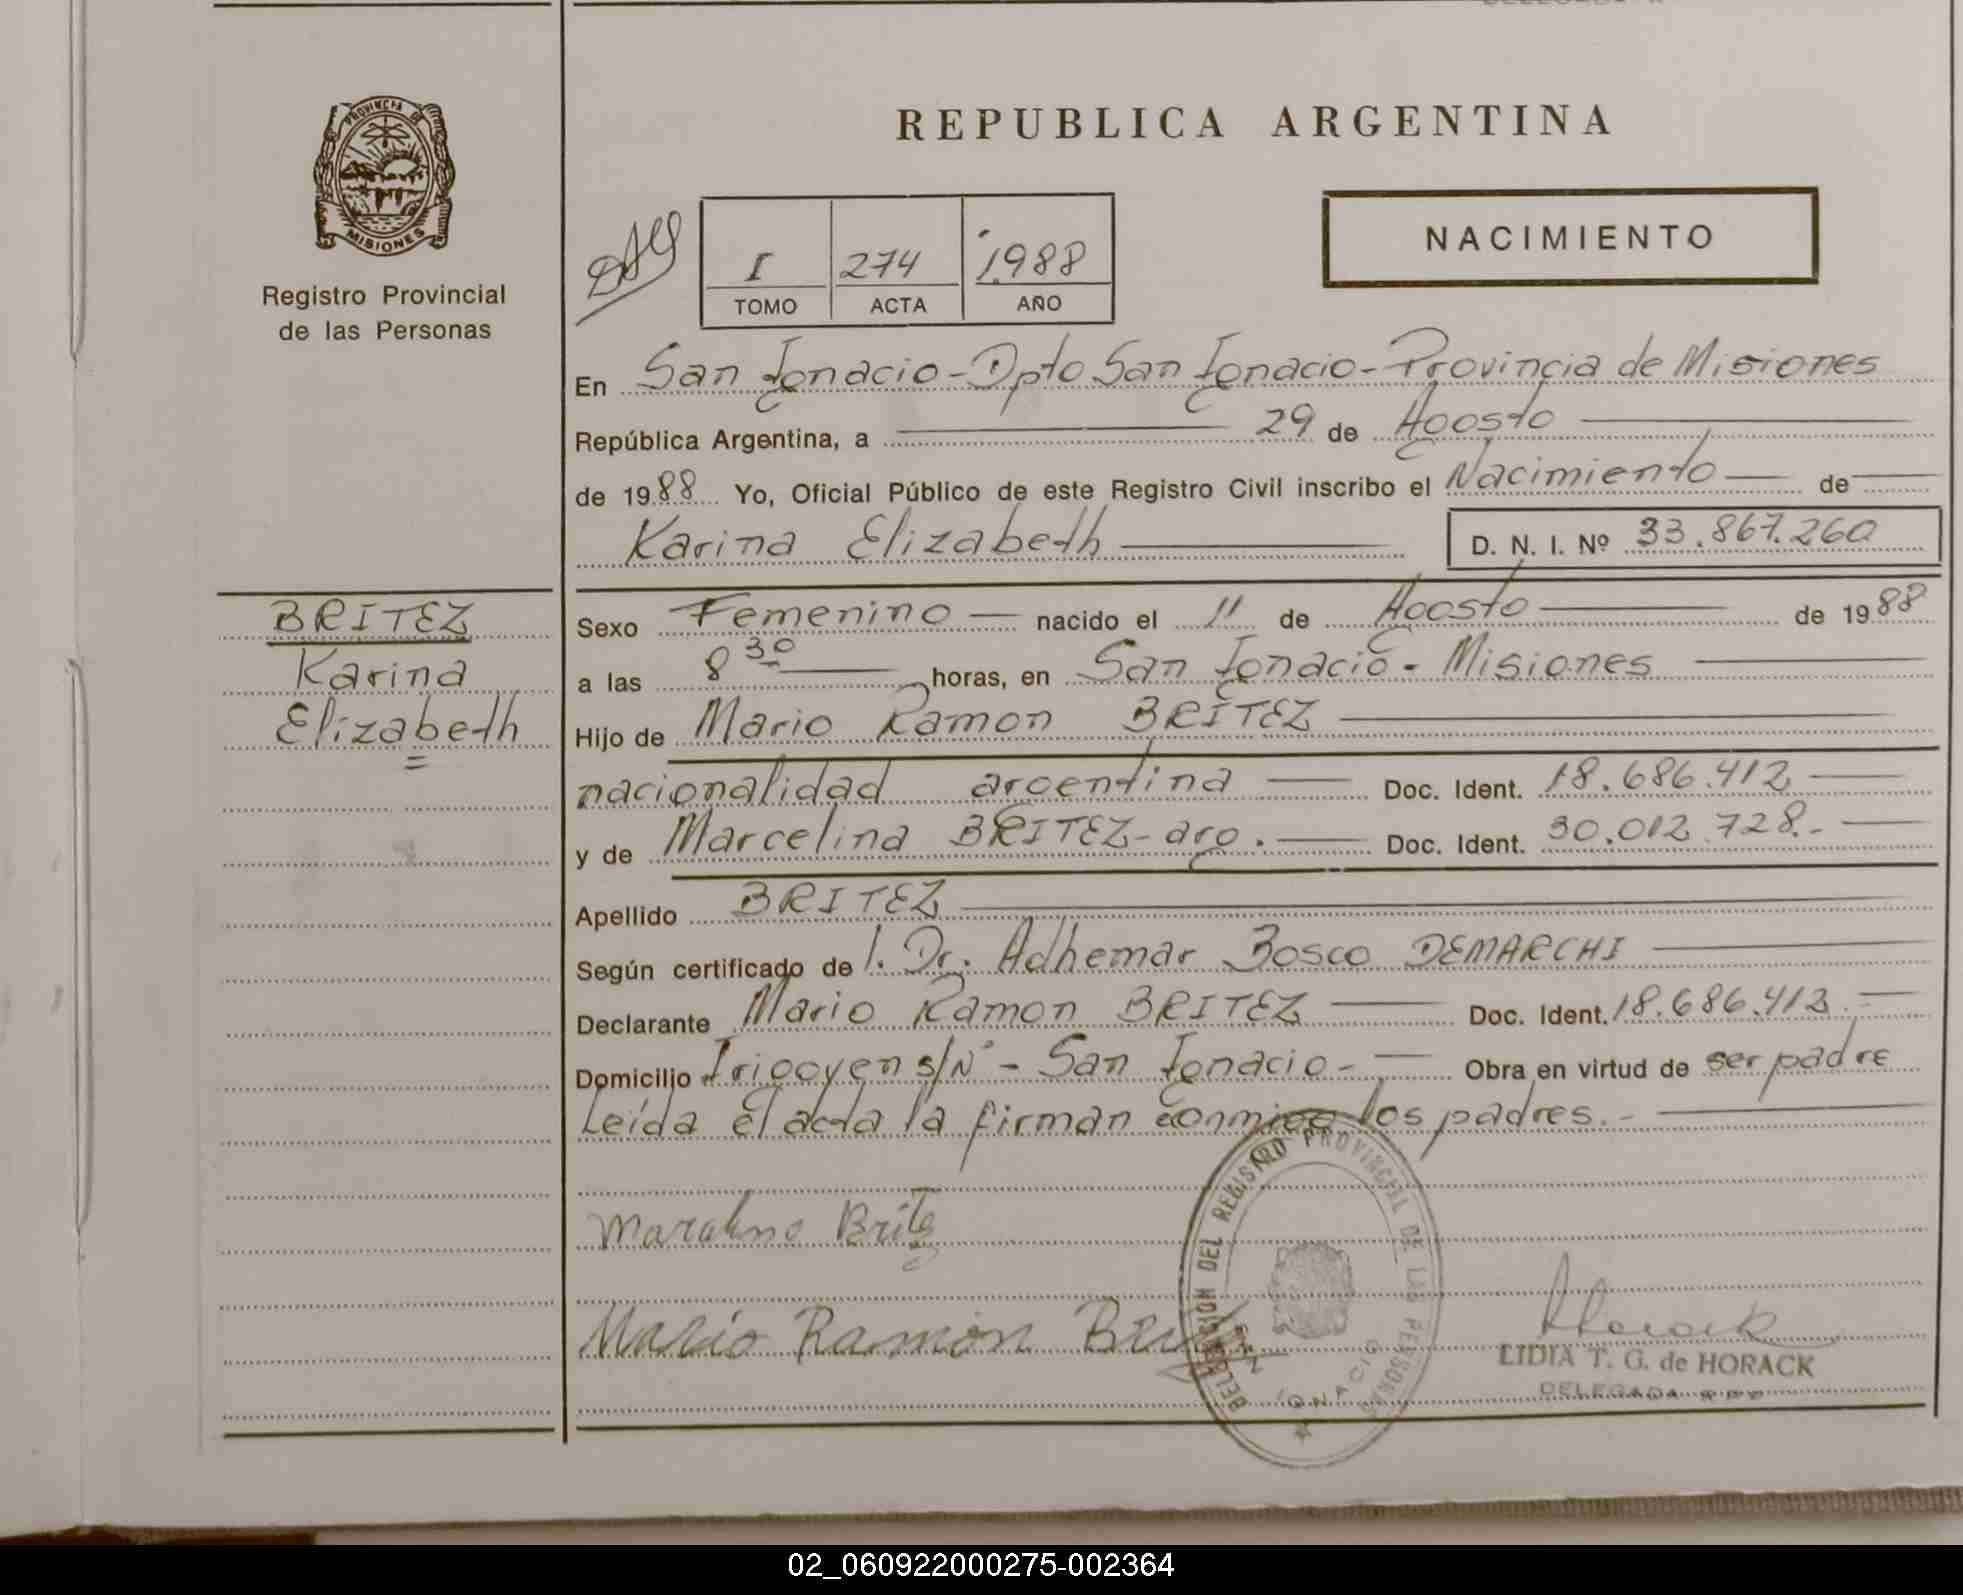 PROVINCIA DE
MISIONES
Registro Provincial
de las Personas
REPUBLICA ARGENTINA
NACIMIENTO
I 274 1988
TOMO ACTA AÑO
En San Ignacio - Dpto San Ignacio - Provincia de Misiones
República Argentina, a 29 de Agosto
de 1988 Yo, Oficial Público de este Registro Civil inscribo el Nacimiento de
Karina Elizabeth D. N. I. Nº 33.867.260
BRITEZ
Karina
Elizabeth
Sexo Femenino nacido el 11 de Agosto de 1988
a las 8 30 horas, en San Ignacio - Misiones
Hijo de Mario Ramon BRITEZ
nacionalidad argentina Doc. Ident. 18.686.412
y de Marcelina BRITEZ - arg. Doc. Ident. 30.012.728.-
Apellido BRITEZ
Según certificado de l. Dr. Adhemar Bosco DEMARCHI
Declarante Mario Ramon BRITEZ Doc. Ident. 18.686.412.
Domicilio Irigoyen s/Nº - San Ignacio - Obra en virtud de ser padre
Leída el acta la firman conmigo los padres. -
Britez
Mario Ramon
DELEGACION DEL REGISTRO PROVINCIAL DE LAS PERSONAS
IGNACIO
LIDIA T. G. de HORACK
DELEGADA R P P
02_060922000275-002364